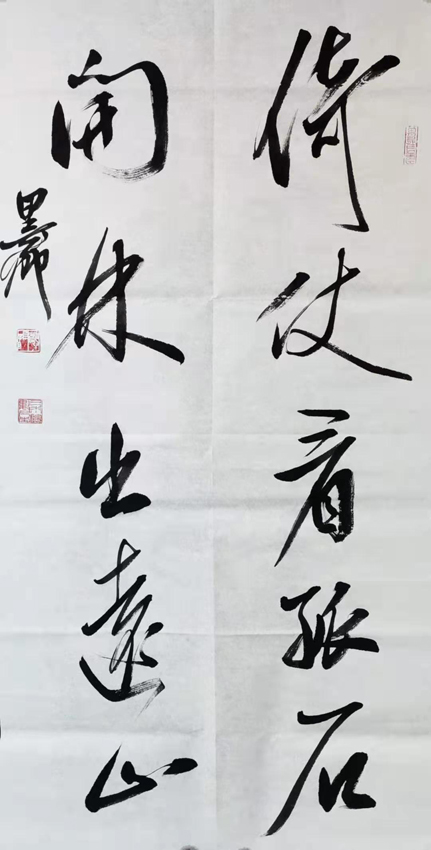 倚仗看孤石
開林出遠山
墨卿